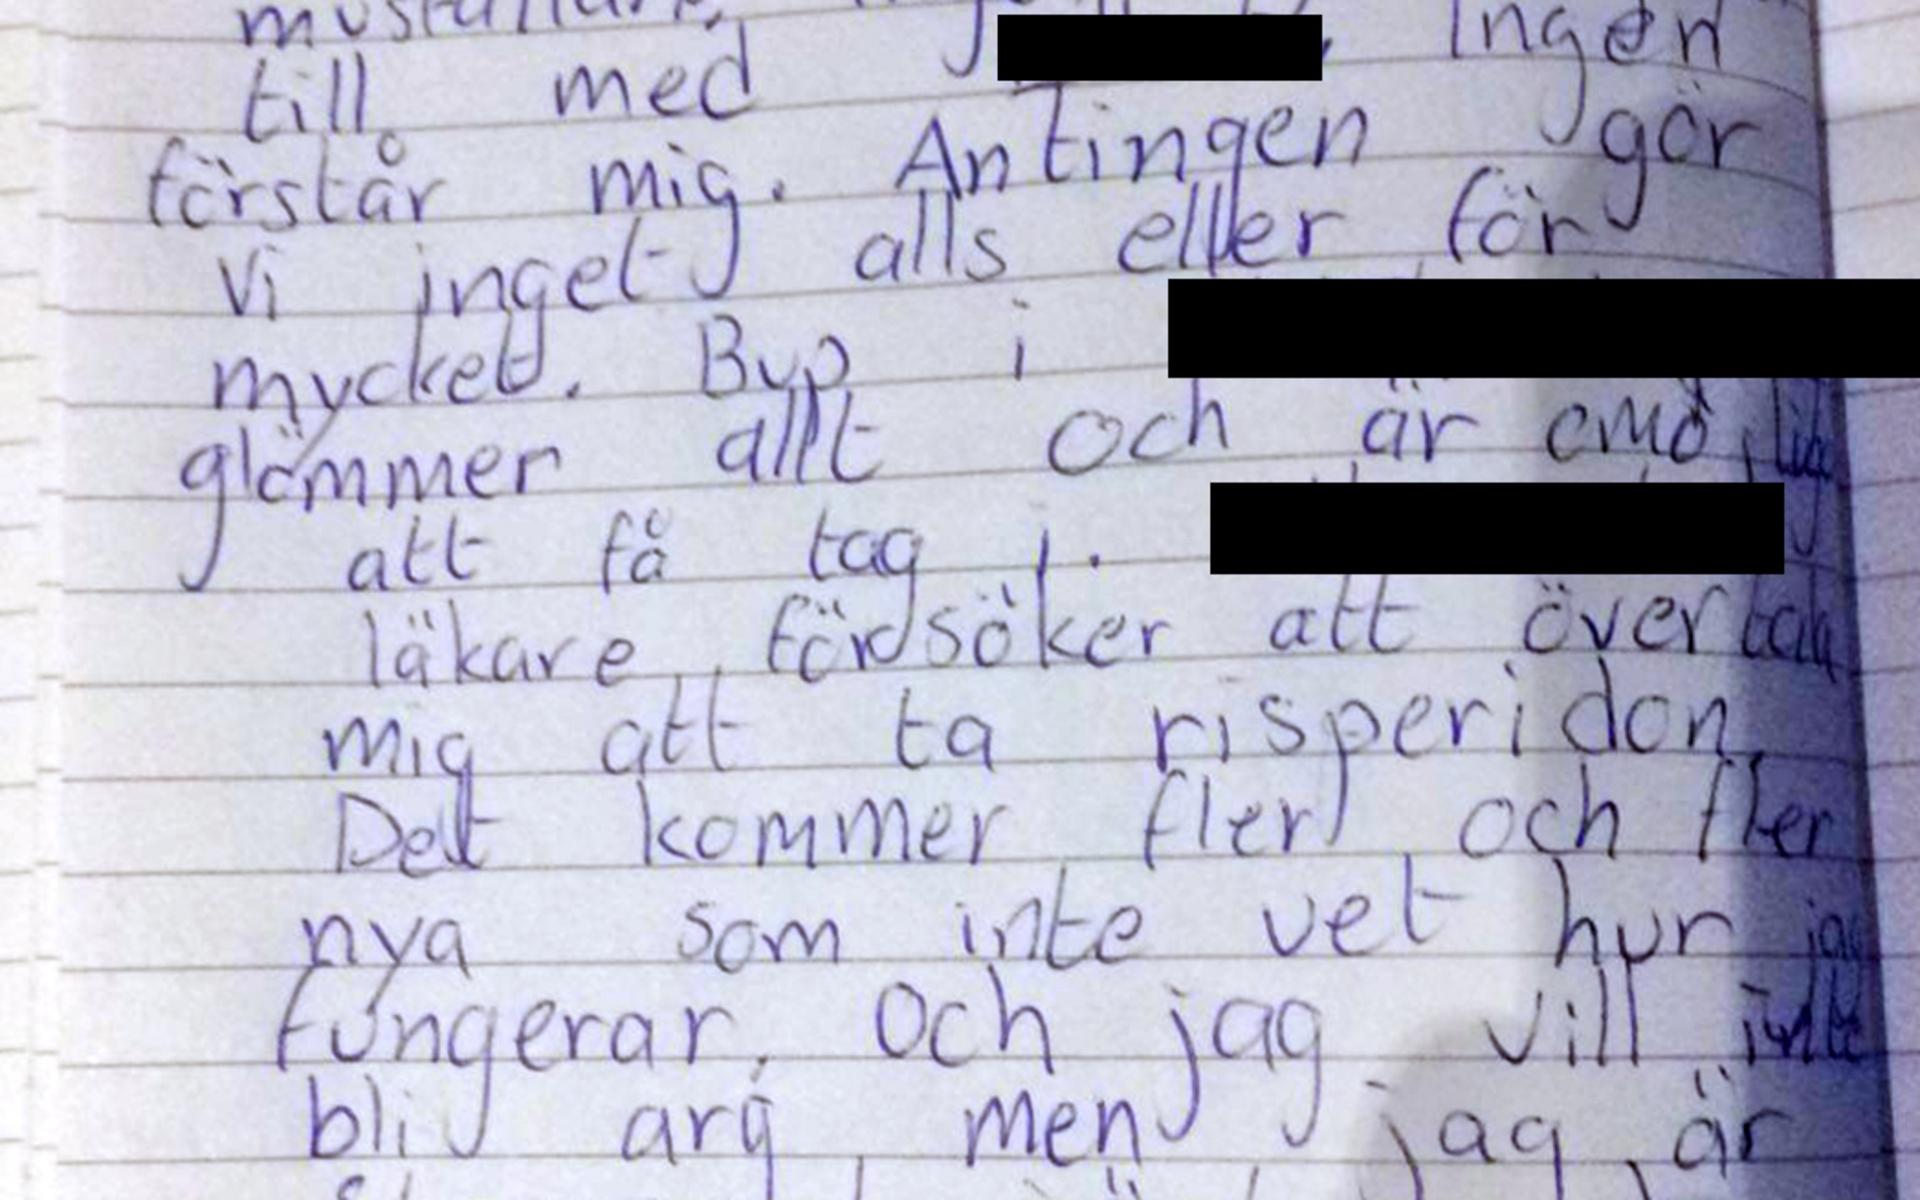 till med Ingen
förstår mig. Antingen gör
vi inget alls eller för
mycket. Bup i
glömmer allt och är omöjlig
att få tag i.
läkare försöker att övertala
mig att ta risperidon.
Det kommer fler och fler
nya som inte vet hur jag
fungerar. Och jag vill inte
bli arg men jag är